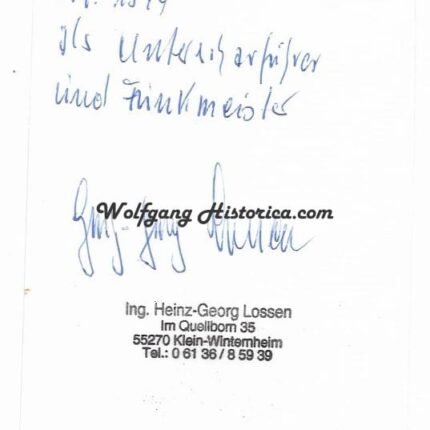 1944
als Unterscharführer
und Funkmeister
Wolfgang Historica.com
Ing. Heinz-Georg Lossen
Im Quellborn 35
55270 Klein-Winternheim
Tel.: 0 61 36 / 8 59 39